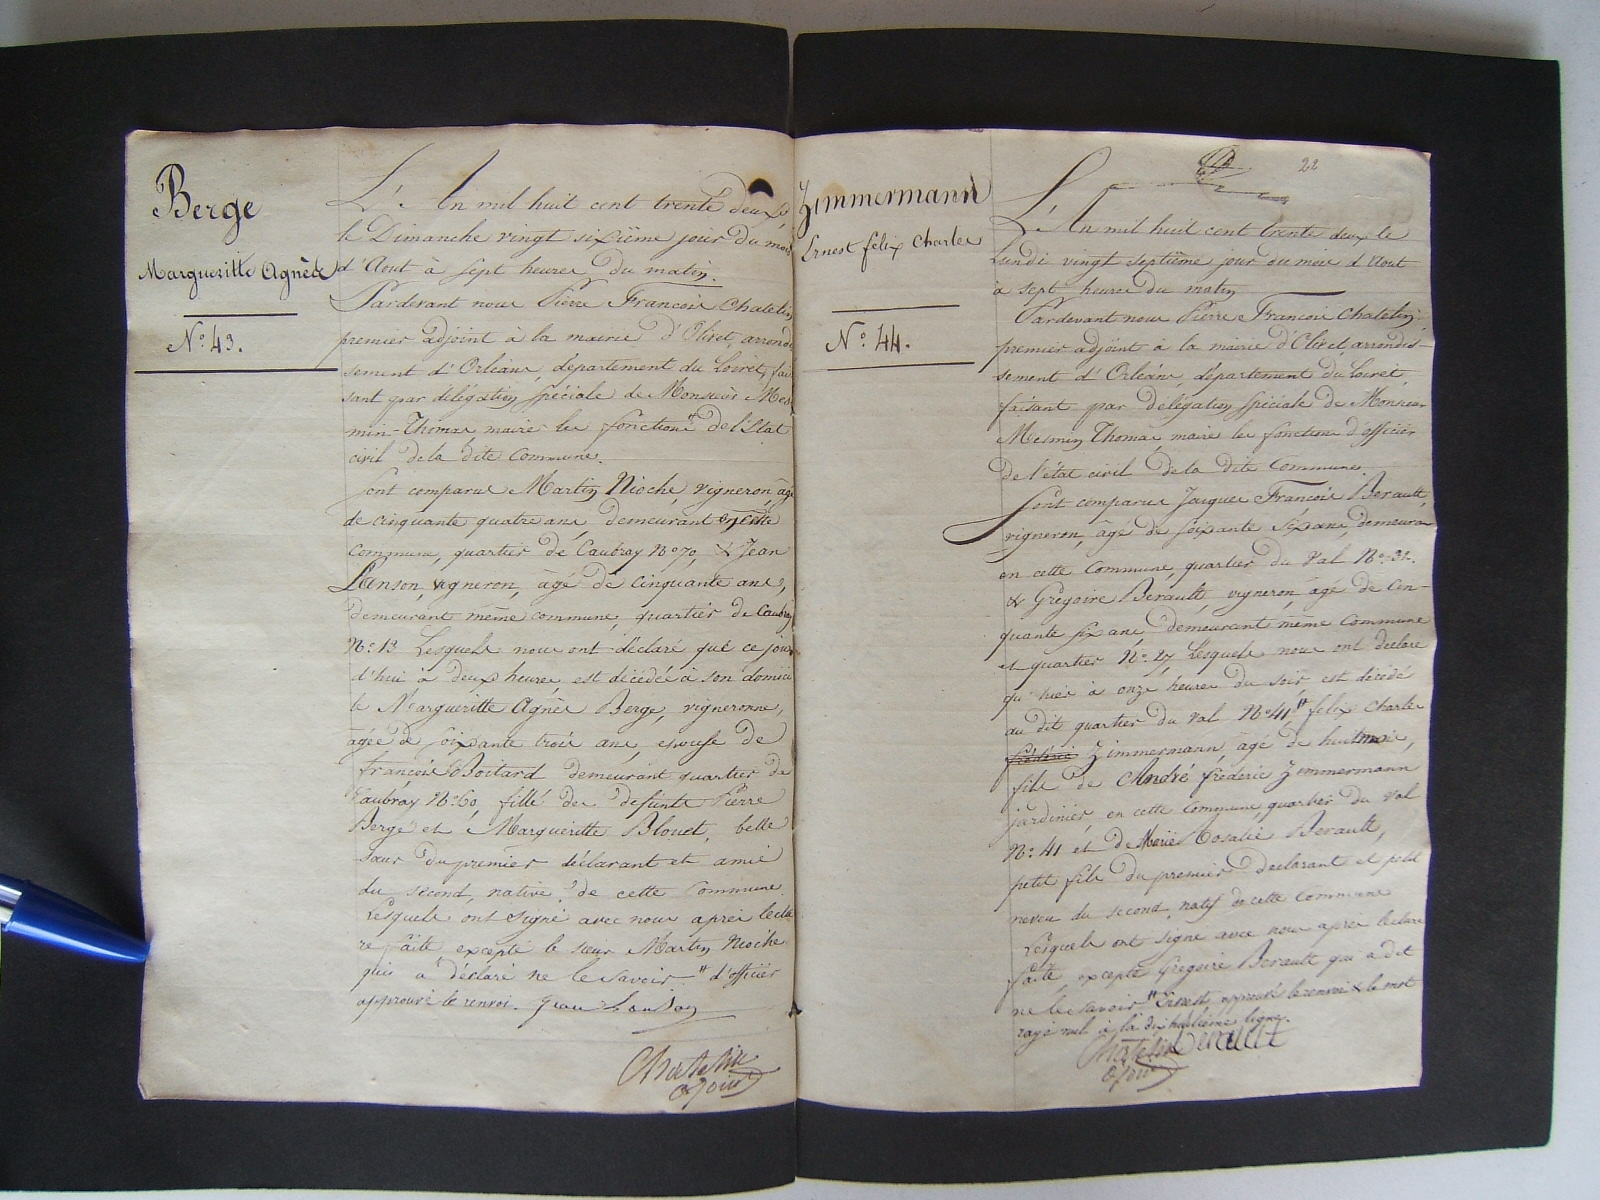 Berge
Margueritte Agnèse
N.° 43.
L'An mil huit cent trente deux
le Dimanche vingt sixième jour du mois
d'Aout à sept heures du matin.
Pardevant nous Pierre François Chatelin
premier adjoint à la mairie d'Olivet, arrondi
ssement d'Orléans, département du Loiret, fai
sant par délégation spéciale de Monsieur Mes
min-Thomas maire les fonctions " de l'Etat
civil de la dite Commune.
sont comparus Martin Nioche, vigneron, âgé
de cinquante quatre ans, demeurant en cette
Commune, quartier de Caubray N° 70, & Jean
Lanson, vigneron, âgé de cinquante ans,
demeurant même commune, quartier de Caubray
N.° 13 Lesquels nous ont déclaré que ce jour
d'hui à deux heures, est décédée à son domici
le Margueritte Agnès Berge, vigneronne,
âgée de soixante trois ans, epouse de
françois Boitard demeurant quartier de
Caubray N.° 60, fille de defunts Pierre
Berge et Margueritte Blouet, belle
sœur du premier déclarant et amie
du second, native de cette Commune.
Lesquels ont signé avec nous après lectu
re faite excepté le sieur Martin Nioche
qui a déclaré ne le savoir " d'officier
approuvé le renvoi. Jean Lanson
Chatelin
adjoint
22
Zimmermann
Ernest felix Charles
N.° 44.
L'An mil huit cent trente deux le
Lundi vingt septième jour du mois d'Aout
à sept heures du matin
Pardevant nous Pierre François Chatelin
premier adjoint à la mairie d'Olivet, arrondis-
sement d'Orléans, département du Loiret,
faisant par délégation spéciale de Monsieur
Mesmin Thomas, maire les fonctions d'officier
de l'état civil de la dite Commune.
Sont comparus Jacques François Berault,
vigneron, âgé de soixante six ans, demeurant
en cette Commune, quartier du Val N.° 31.
& Grégoire Berault, vigneron, âgé de cin-
quante six ans, demeurant même Commune
et quartier N.° 27, Lesquels nous ont déclaré
qu'hier à onze heures du soir, est décédé
au dit quartier du Val N.° 41 " felix Charles
fréderic Zimmermann, âgé de huit mois,
fils de André fréderic Zimmermann
jardinier en cette Commune, quartier du Val
N.° 41 et de Marie Rosalie Berault,
petit fils du premier declarant et petit
neveu du second, natif de cette Commune
Lesquels ont signé avec nous après lecture
faite, excepté Grégoire Berault qui a dit
ne le savoir " Ernest, approuvé le renvoi & le mot
rayé nul à la dix huitième ligne.
Chatelin Berault
adjoint